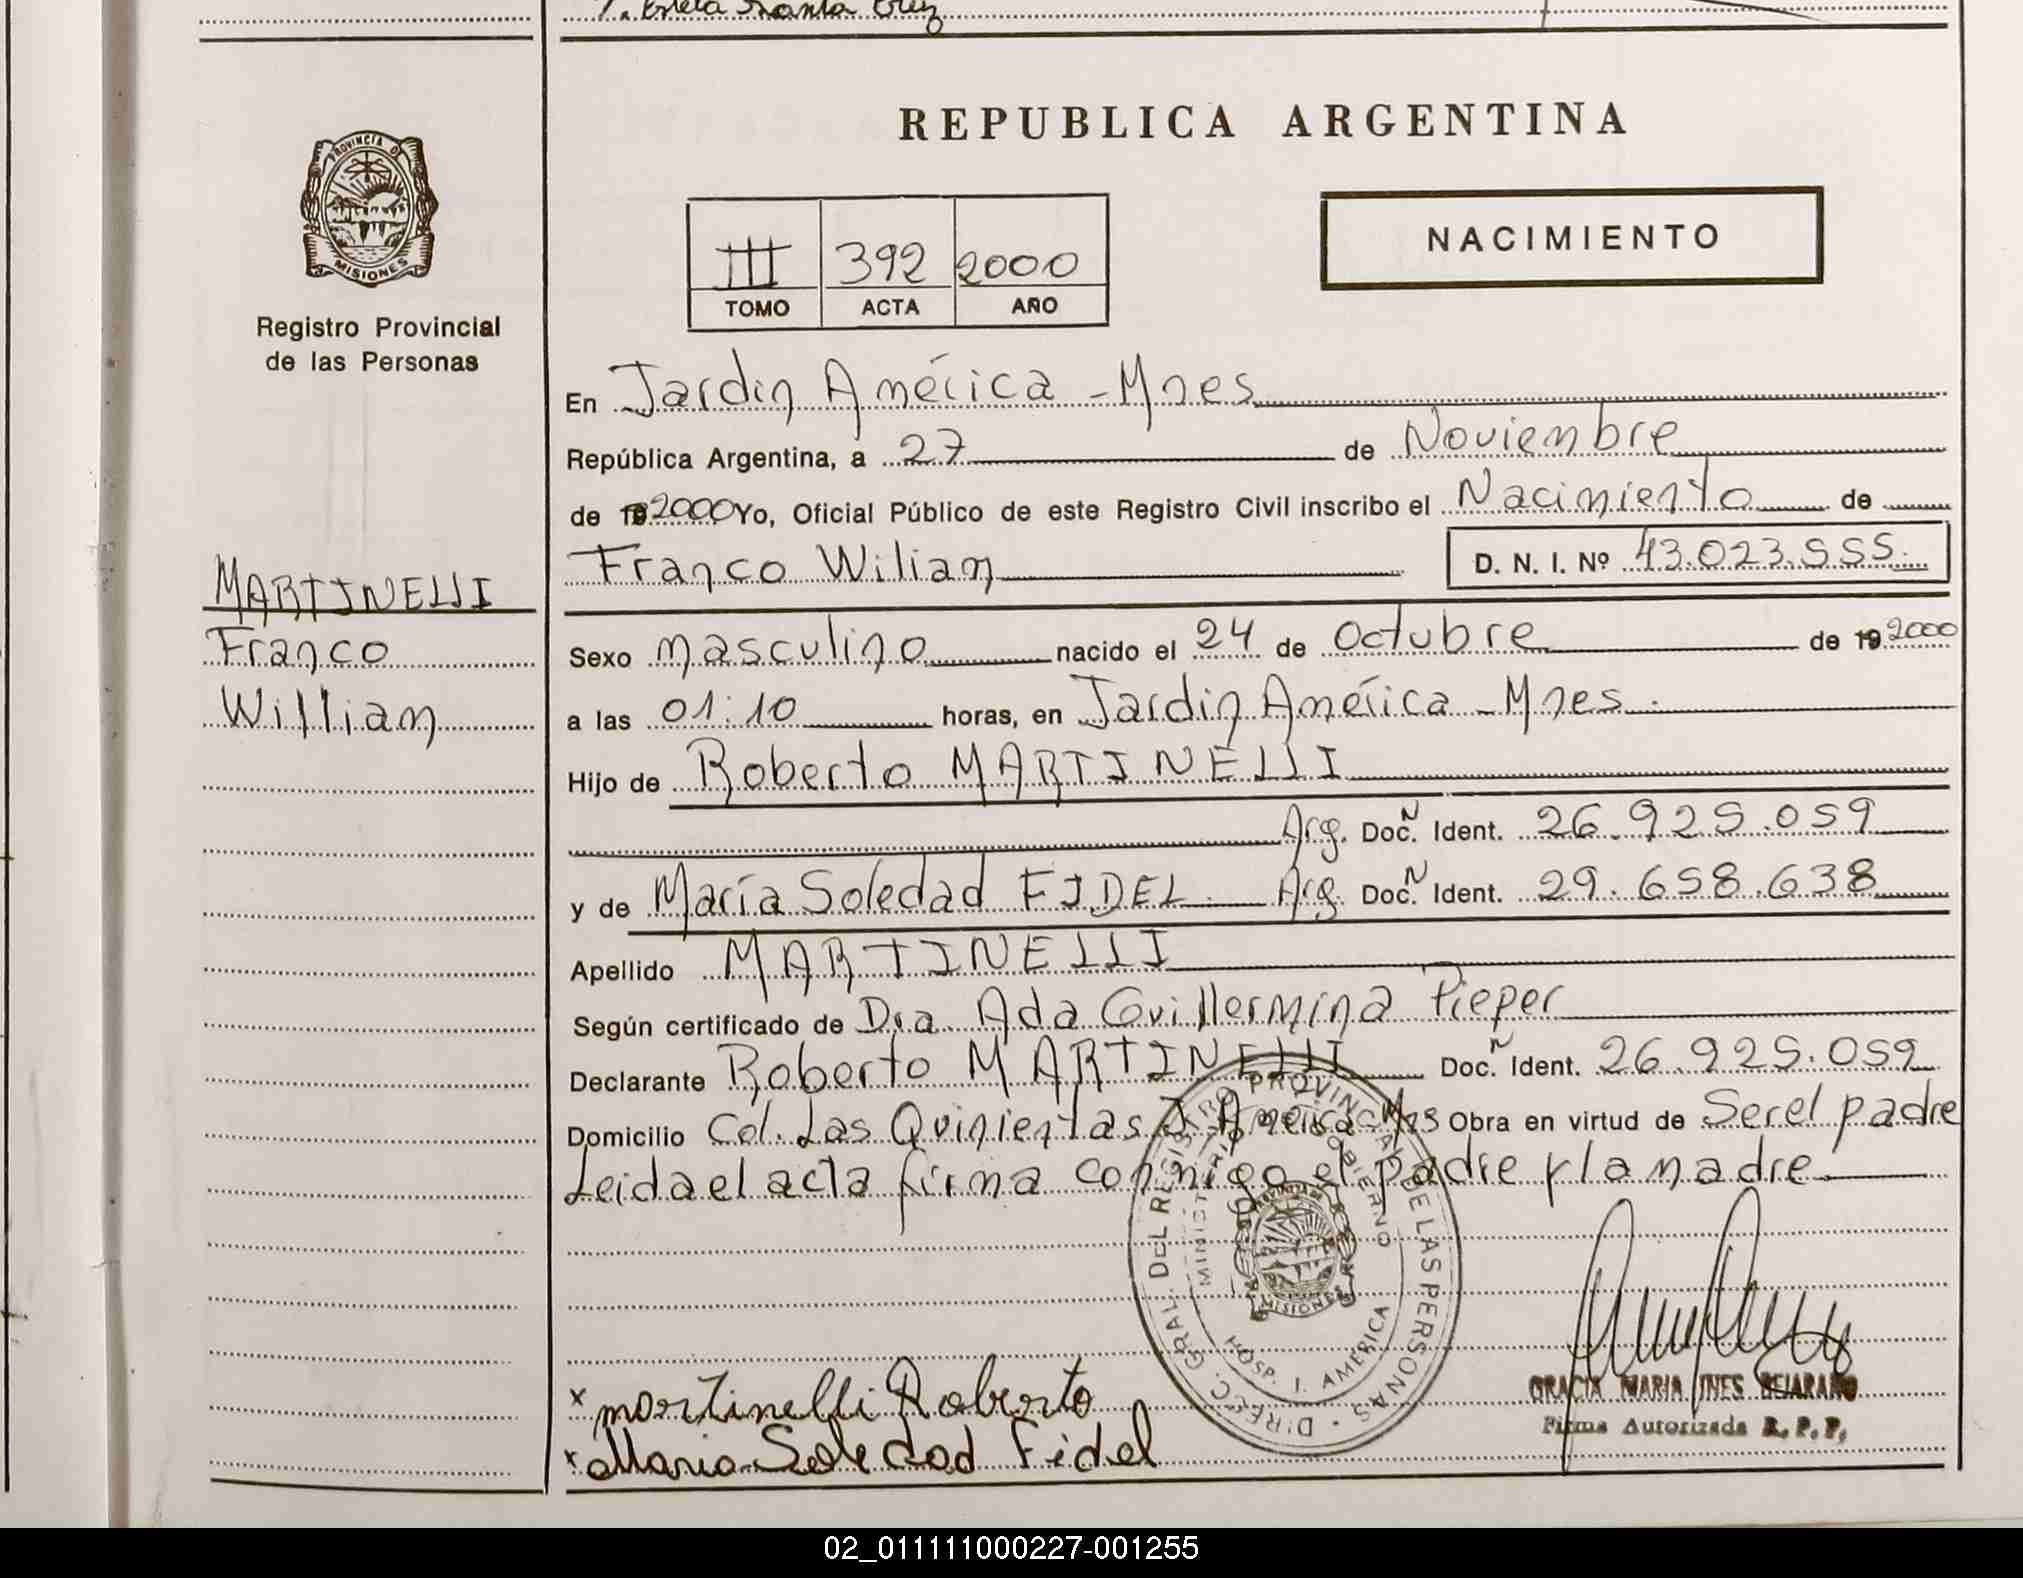 REPUBLICA ARGENTINA
PROVINCIA DE
MISIONES
Registro Provincial
de las Personas
NACIMIENTO
III 392 2000
TOMO ACTA AÑO
En Jardin América - Mnes
República Argentina, a 27 de Noviembre
de 19 2000 Yo, Oficial Público de este Registro Civil inscribo el Nacimiento de
Franco Wilian D. N. I. Nº 43.023.555.
MARTINELLI
Franco
Willian
Sexo masculino nacido el 24 de Octubre de 19 2000
a las 01:10 horas, en Jardin América - Mnes.
Hijo de Roberto MARTINELLI
Arg. Doc. N Ident. 26.925.059
y de María Soledad FIDEL. Arg. Doc. N Ident. 29.658.638
Apellido MARTINELLI
Según certificado de Dra. Ada Guillermina Pieper
Declarante Roberto MARTINELLI Doc. N Ident. 26.925.059
Domicilio Col. Las Quinientas J. América Mnes Obra en virtud de Ser el padre
Leida el acta firma conmigo el padre y la madre
DIREC. GRAL. DEL REGISTRO PROVINCIAL DE LAS PERSONAS
MINISTERIO DE GOBIERNO
PROVINCIA DE
MISIONES
HOSP. J. AMERICA
x martinelli Roberto
x Maria Soledad Fidel
GRACIA MARIA INES BEJARANO
Firma Autorizada R. P. P.
02_011111000227-001255